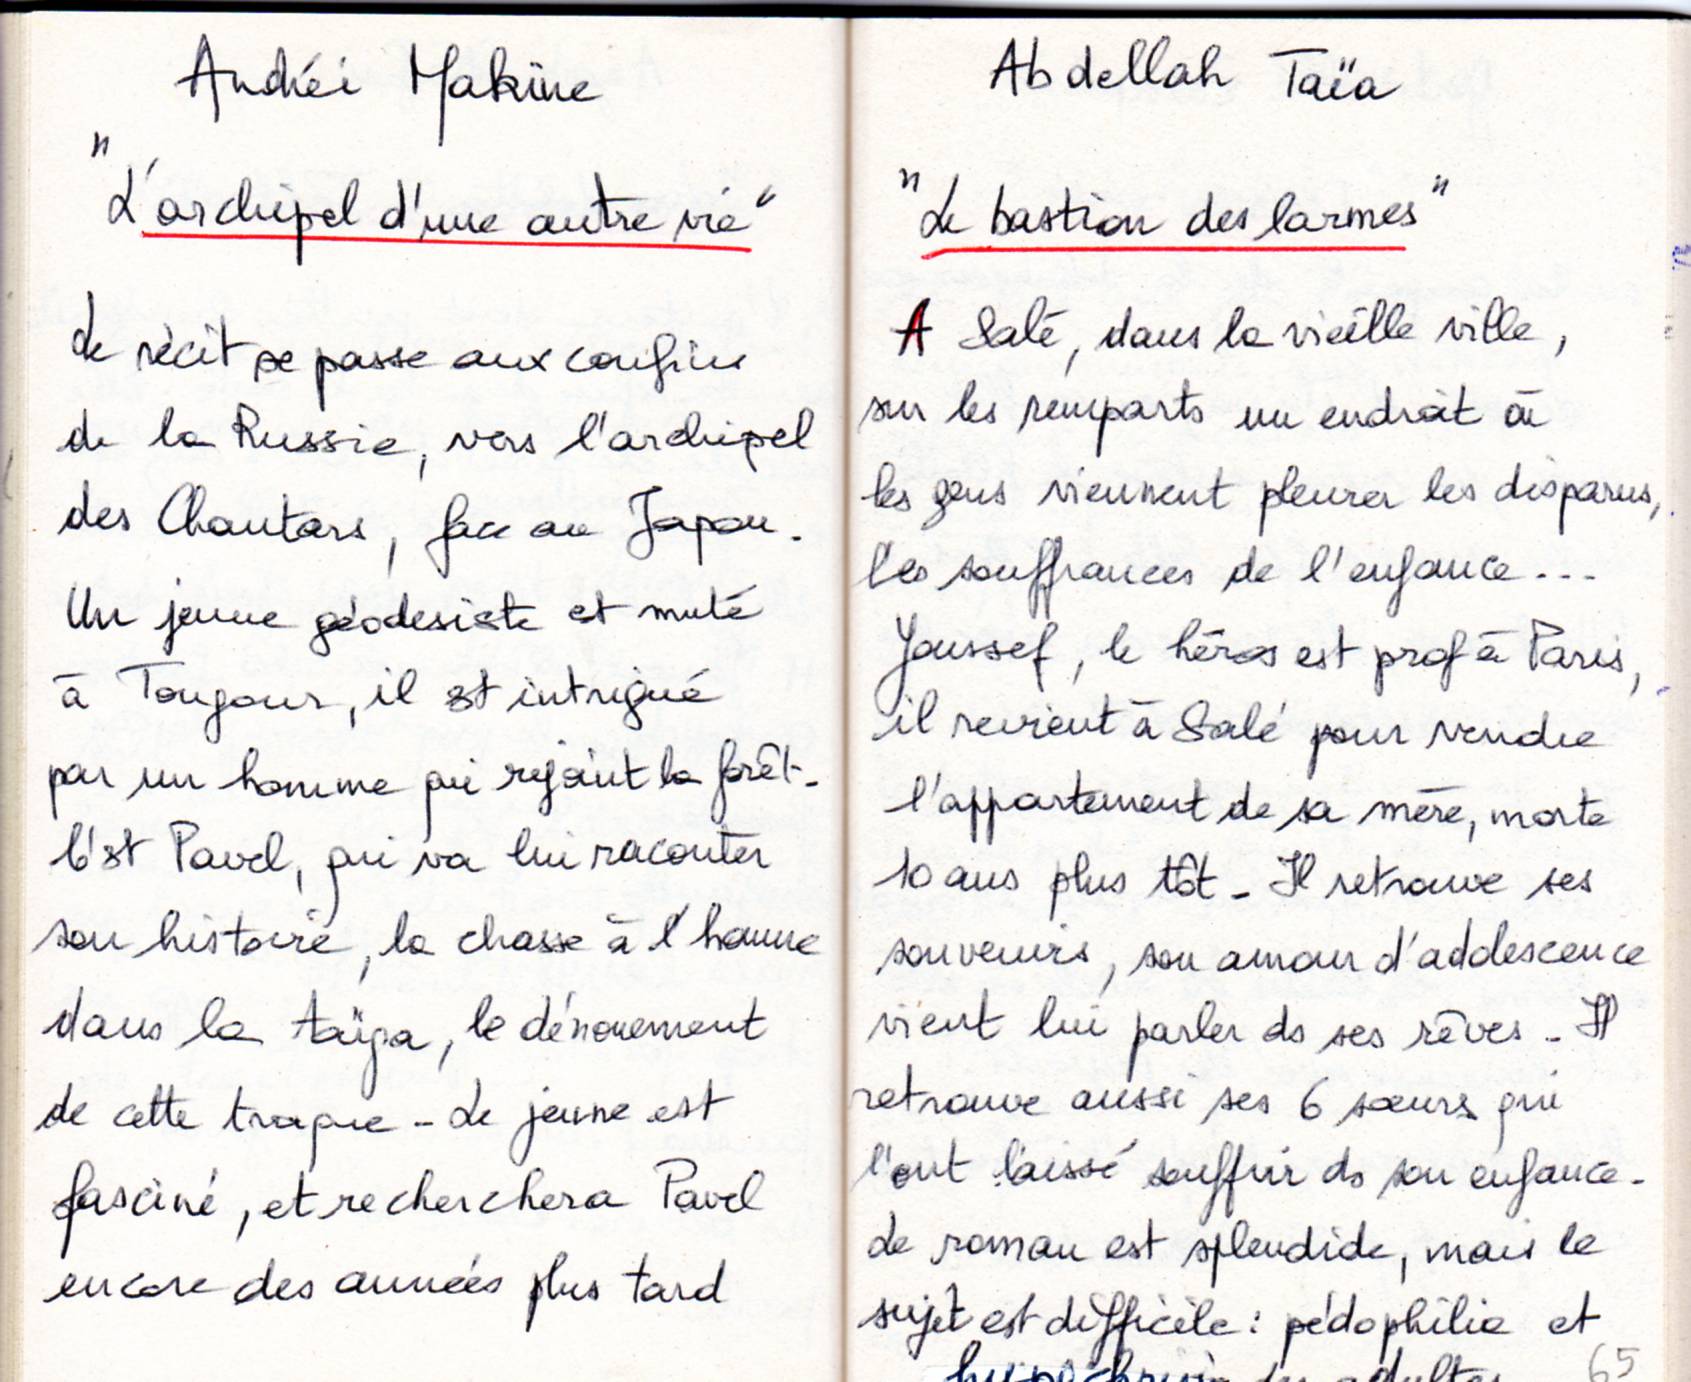 Andréi Makine
"L'archipel d'une autre vie"
Le récit se passe aux confins
de la Russie, vers l'archipel
des Chantars, face au Japon.
Un jeune géodesiste est muté
à Tougour, il est intrigué
par un homme qui rejoint la forêt.
C'est Pavel, qui va lui raconter
son histoire, la chasse à l'homme
dans la taïga, le dénouement
de cette traque - Le jeune est
fasciné, et recherchera Pavel
encore des années plus tard
Abdellah Taïa
"Le bastion des larmes"
A Salé, dans la vieille ville,
sur les remparts un endroit où
les gens viennent pleurer les disparus,
les souffrances de l'enfance...
Youssef, le héros est prof à Paris,
il revient à Salé pour vendre
l'appartement de sa mère, morte
10 ans plus tôt - Il retrouve ses
souvenirs, son amour d'addescence
vient lui parler ds ses rêves - Il
retrouve aussi ses 6 sœurs qui
l'ont laissé souffrir ds son enfance.
Le roman est splendide, mais le
sujet est difficile : pédophilie et
hypochrisie des adultes
65